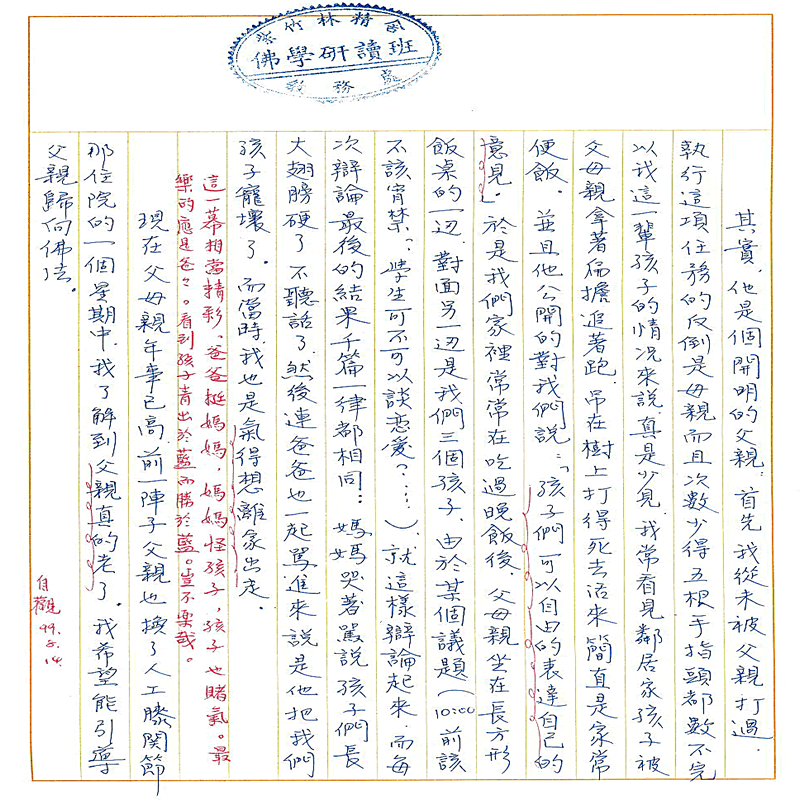 紫竹林精舍
佛學研讀班
教務處
其實，他是個開明的父親，首先我從未被父親打過．
執行這項任務的反倒是母親而且次數少得五根手指頭都數不完
以我這一輩孩子的情況來說，真是少見，我常看見鄰居家孩子被
父母親拿著扁擔追著跑．吊在樹上打得死去活來簡直是家常
便飯．並且他公開的對我們說：「孩子們可以自由的表達自己的
意見」於是我們家裡常常在吃過晚飯後，父母親坐在長方形
飯桌的一边．對面另一边是我們三個孩子．由於某個議題（10:00前該
不該宵禁？，學生可不可以談戀愛？……），就這樣辯論起來，而每
次辯論最後的結果千篇一律都相同…媽媽哭著罵說孩子們長
大翅膀硬了，不聽話了，然後連爸爸也一起罵進來說是他把我們
孩子寵壞了．而當時，我也是氣得想離家出走．
這一幕相當精彩，爸爸挺媽媽，媽媽怪孩子，孩子也賭氣。最
樂的應是爸々。看到孩子青出於藍而勝於藍。豈不樂哉。
現在父母親年事已高，前一陣子父親也換了人工膝関節
那住院的一個星期中，我了解到父親真的老了．我希望能引導
父親歸向佛法。
自觀
99.5.14.